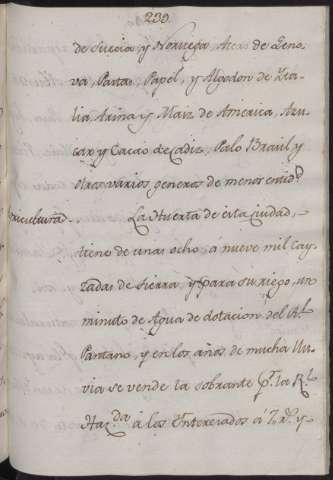 239.
de Suecia y Noruega, Aros de Geno-
va, Pastas, Papel, y Algodon de Ita-
lia, Arina y Maiz de America, Azu-
car y Cacao de Cadiz, Palo Brasil y
otros varios generos de menor entid.d
Agricultura... La Huerta de esta Ciudad,
tiene de unas ocho, a nueve mil tay-
zadas de tierra, y para su riego, un
minuto de Agua de dotacion del Rl.
Pantano, y en los años de mucha llu-
via se vende la sobrante p.r la Rl.
Haz.da a los Interesados á